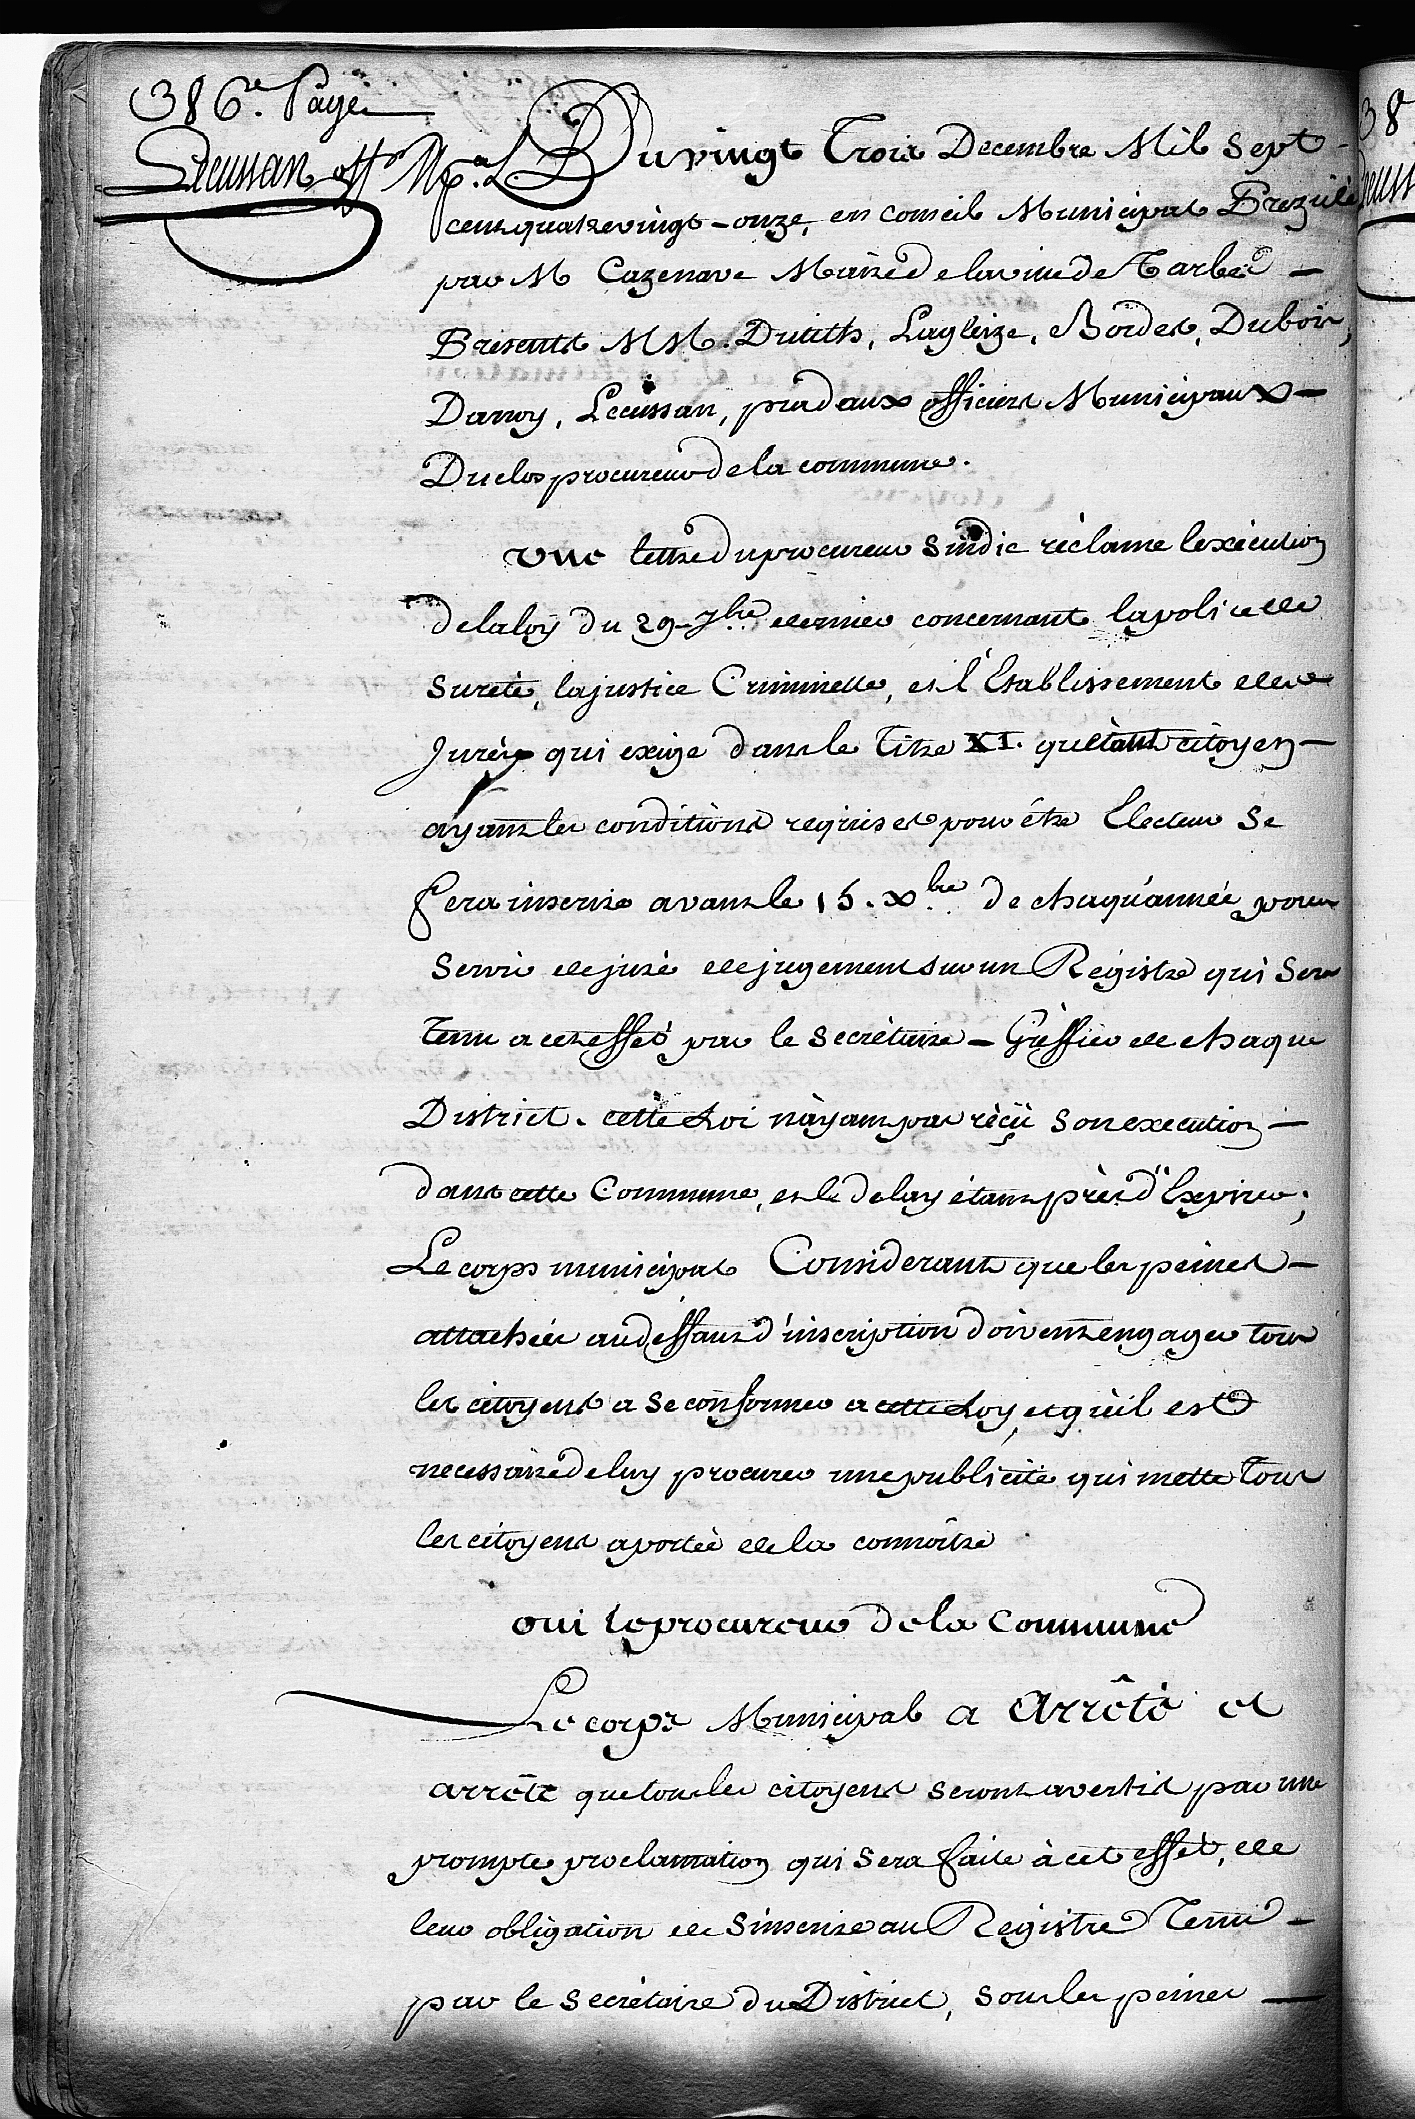 386.e Page
Lecussan off. M.pal
Du vingt Trois Decembre Mil Sept
cent quatrevingt-onze, en Conseil Municipal Prezidé
par M Cazenave Maire de la ville de Tarbes —
Présents MM. Dutilh, Lagleize, Bordes, Dubois,
Darroy, Lecussan, pradaux officiers Municipaux —
Duclos procureur de la commune.
une lettre du procureur Sindic réclame lexécution
de la loy du 29 7bre dernier concernant la police de
Sureté, la justice Criminelle, et l'Etablissement des
Jurés qui exige dans le Titre XI. que tout citoyen —
ayant les conditions requises pour étre Electeur Se
fera inscrire avant le 15. Xbre de chaqu'année pour
Servir de juré de jugement sur un Régistre qui Sera
Tenu a cet effèt par le Secrétaire — Gréffier de chaque
District. cette Loi n'ayant pas réçu son execution —
dans cette Commune, et le delay étant près d'Expirer;
Le corps municipal Considerant que les peines —
attachées au deffaut d'inscription doivent engager tous
les citoyens a se conformer a cette Loy, et qu'il est
necessaire de luy procurer une publicité qui mette Tous
les citoyens a portée de la connoître
oui le procureur de la Commune
Le corps Municipal a Arrêté et
arrête que tous les citoyens seront avertis par une
prompte proclamation qui Sera faite à cet effèt, de
leur obligation de S'inscrire au Régistre Tenu —
par le Secrétaire du District, Sous les peines —
38